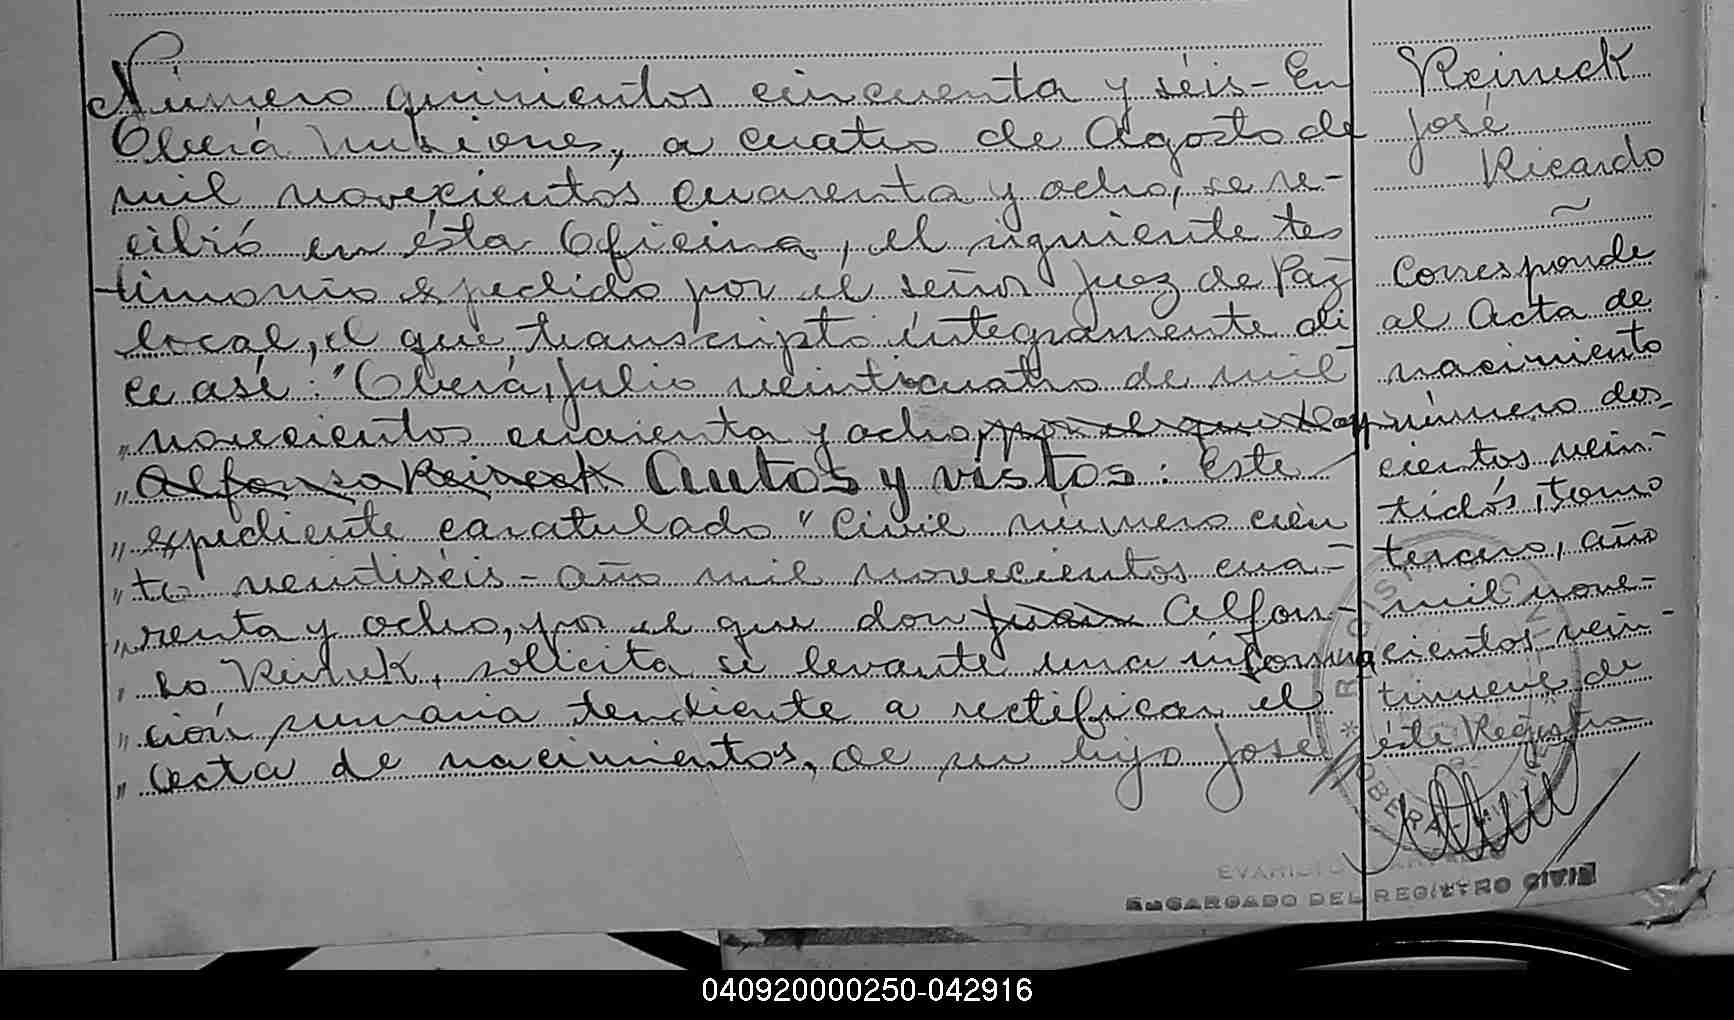 Número quinientos cincuenta y séis - En
Oberá Misiones, a cuatro de Agosto de
mil novecientos cuarenta y ocho, se re-
cibió en ésta Oficina, el siguiente tes
timonio expedido por el señor Juez de Paz
local, el que transcripto íntegramente di
ce asi: "Oberá, Julio veinticuatro de mil
" novecientos cuarenta y ocho, por el que don
" Alfonso Reineck Autos y vistos: Este
" expediente caratulado "Civil número cien
" to veintiséis - año mil novecientos cua-
" renta y ocho, por el que don Juan Alfon-
" so Reineck, solicita se levante una informa
" ción sumaria tendiente a rectificar el
" acta de nacimientos, de su hijo José
Reineck
José
Ricardo
~
Corresponde
al Acta de
nacimiento
número dos-
cientos vein-
tidós, tomo
tercero, año
mil nove-
cientos vein-
tinueve de
éste Registro
OBERA
ENCARGADO DEL REGISTRO CIVIL
040920000250-042916